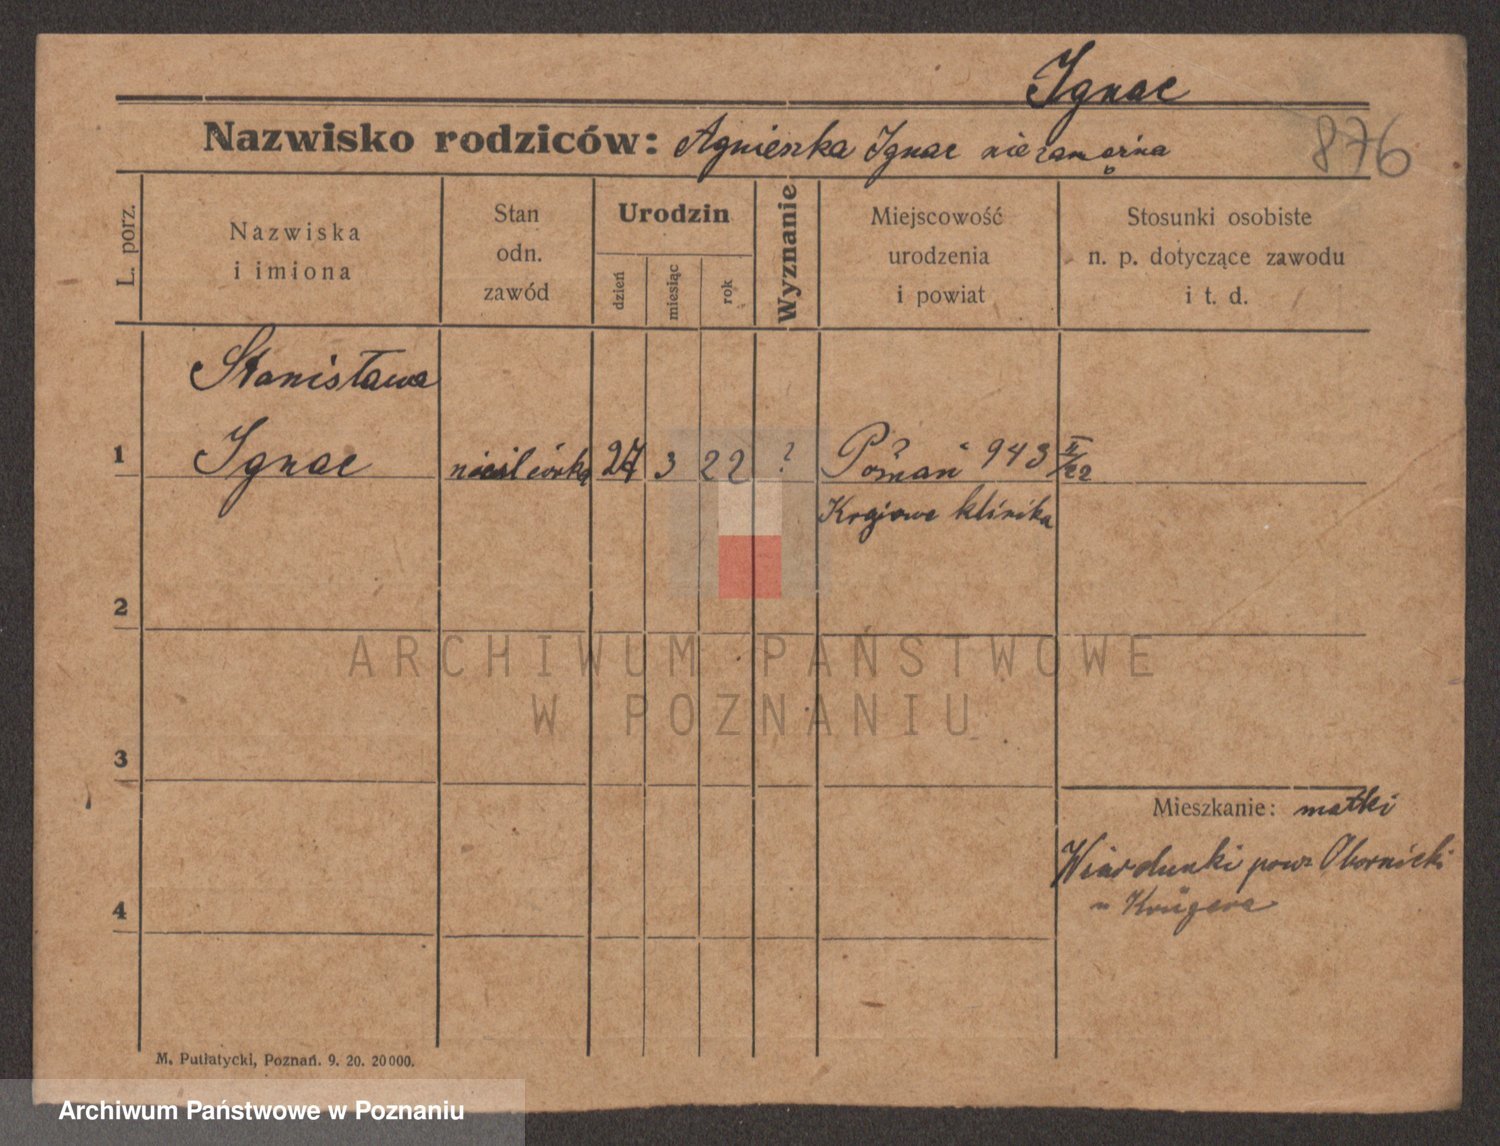 Ignac
Nazwisko rodziców: Agnieszka Ignac niezamężna
876
L. porz.
Nazwiska
i imiona
Stan
odn.
zawód
Urodzin
dzień
miesiąc
rok
Wyznanie
Miejscowość
urodzenia
i powiat
Stosunki osobiste
n. p. dotyczące zawodu
i t. d.
Stanisława
1 Ignac 3 22 ? Poznań 943 II/22
Krajowa klinika
2
ARCHIWUM PAŃSTWOWE
W POZNANIU
3
Mieszkanie: matki
Wiardunki pow. Obornicki
u Krügera
4
M. Putiatycki, Poznań. 9. 20. 20000.
Archiwum Państwowe w Poznaniu